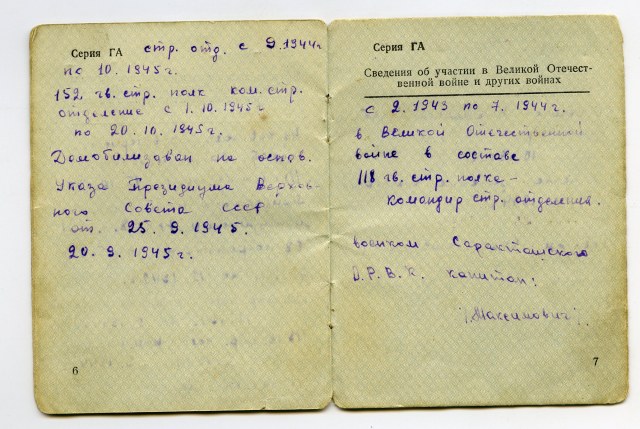 Серия ГА стр. отд. с 9.1944г
по 10.1945г.
152 гв. стр. полк ком. стр.
отделение с 1.10.1945г
по 20.10.1945г.
Демобилизован на основ.
Указа Президиума Верхов-
ного Совета СССР
от. 25.9.1945.
20.9.1945г.
6
Серия ГА
Сведения об участии в Великой Отечест-
венной войне и других войнах
с 2.1943 по 7.1944г.
в Великой Отечественной
войне в составе
118 гв. стр. полка -
командир стр. отделения.
военком Саракташского
О.Р.В.К. капитан:
/Максимович/.
7